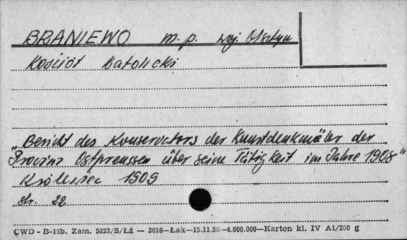 BRANIEWO m.p. woj. Olsztyn
Kościół katolicki
"Bericht des Konservators der Kunstdenkmäler der
Provinz Ostpreussen über seine Tätigkeit im Jahre 1908"
Królewiec 1909
str. 22
CWD - B-15b. Zam. 5823/S/ŁŻ — 3016—Łak—15.11.56—4.000.000—Karton kl. IV A1/200 g